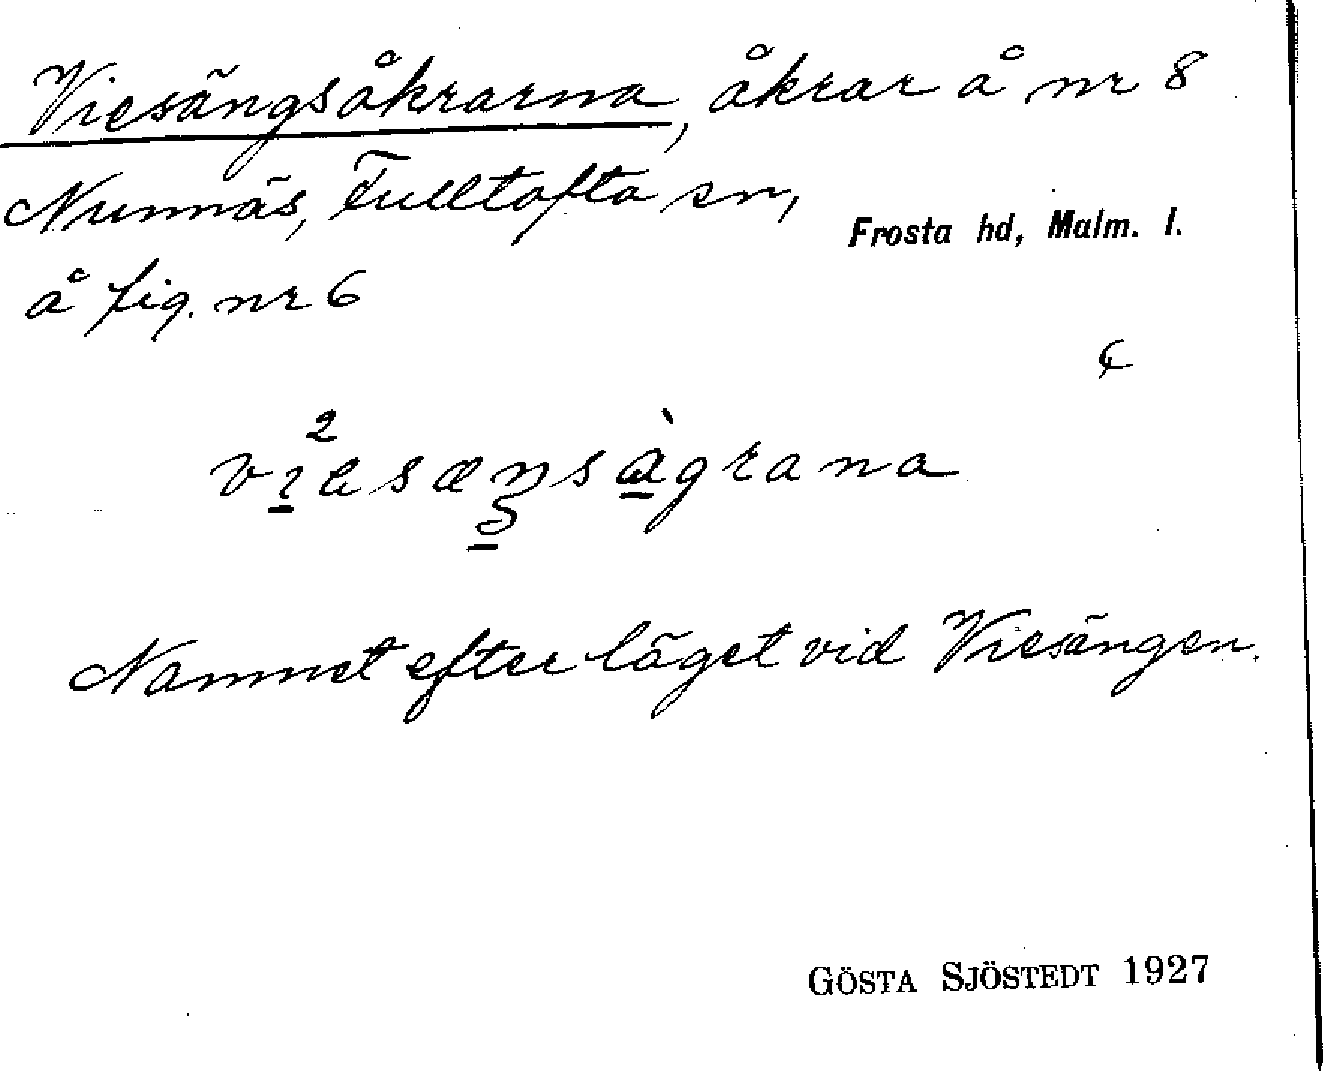 Viesängsåkrarna, åkrar å nr 8
Nunnäs, Fulltofta sn, Frosta hd, Malm. l.
å fig. nr 6
Namnet efter läget vid Viesängen.
GÖSTA SJÖSTEDT 1927